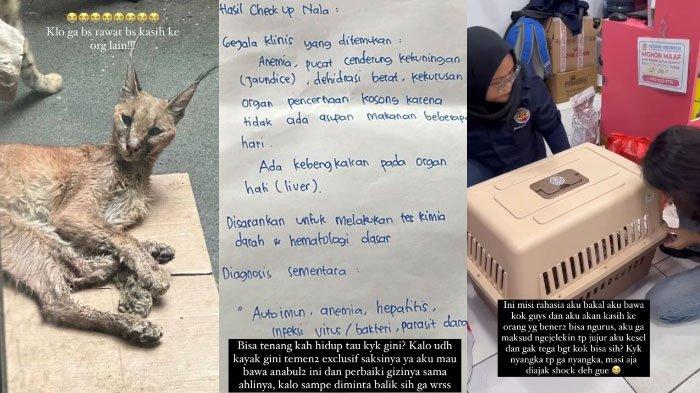 😭😭😭😭😭😭😭
Klo ga bs rawat bs kasih ke
org lain!!!
Hasil Check up Nala :
Gejala klinis yang ditemukan :
Anemia, pucat cenderung kekuningan
(jaundice), dehidrasi berat, kekurusan
organ pencernaan kosong karena
tidak ada asupan makanan beberapa
hari.
Ada kebengkakan pada organ
hati (liver).
Disarankan untuk melakukan tes kimia
darah & hematologi dasar
Diagnosis sementara :
" Autoimun, anemia, hepatitis,
infeksi virus / bakteri, parasit darah
Bisa tenang kah hidup tau kyk gini? Kalo udh
kayak gini temen2 exclusif saksinya ya aku mau
bawa anabul2 ini dan perbaiki gizinya sama
ahlinya, kalo sampe diminta balik sih ga wrss
MOHON MAAF
Ini misi rahasia aku bakal aku bawa
kok guys dan aku akan kasih ke
orang yg bener2 bisa ngurus, aku ga
maksud ngejelekin tp jujur aku kesel
dan gak tega bgt kok bisa sih? Kyk
nyangka tp ga nyangka, masi aja
diajak shock deh gue 🥹